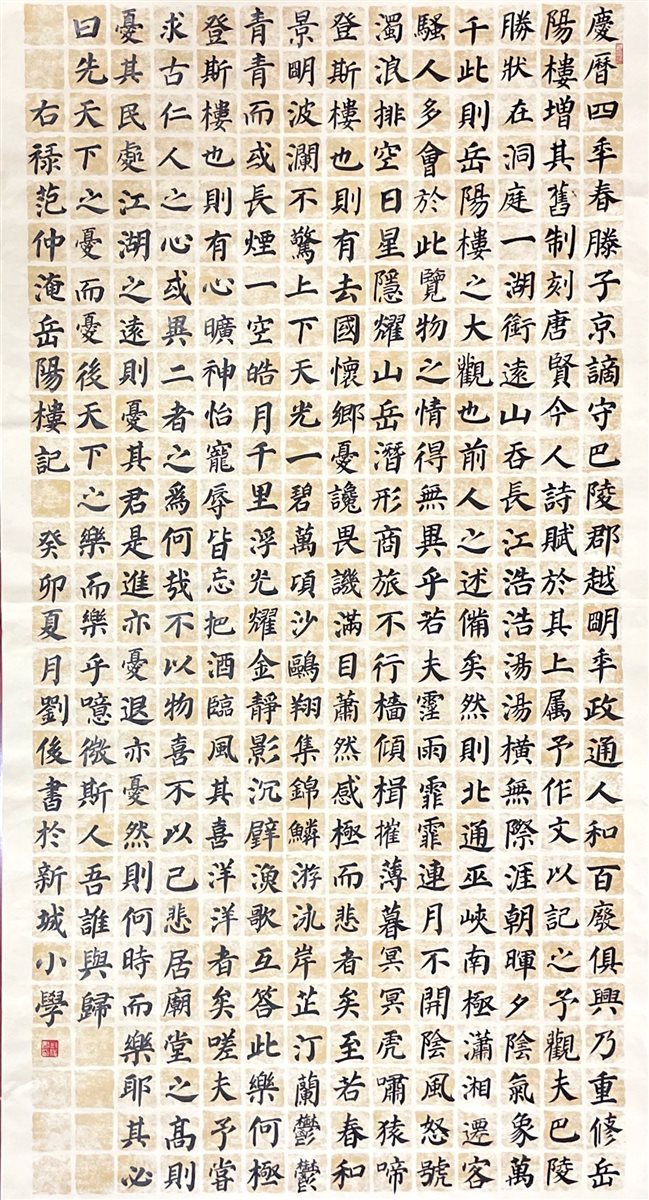 慶曆四年春滕子京謫守巴陵郡越明年政通人和百廢俱興乃重修岳
陽樓增其舊制刻唐賢今人詩賦於其上属予作文以記之予觀夫巴陵
勝狀在洞庭一湖銜遠山吞長江浩浩湯湯橫無際涯朝暉夕陰氣象萬
千此則岳陽樓之大觀也前人之述備矣然則北通巫峽南極瀟湘遷客
騷人多會於此覽物之情得無異乎若夫霪雨霏霏連月不開陰風怒號
濁浪排空日星隱耀山岳潛形商旅不行檣傾楫摧薄暮冥冥虎嘯猿啼
登斯樓也則有去國懷鄉憂讒畏譏滿目蕭然感極而悲者矣至若春和
景明波瀾不驚上下天光一碧萬項沙鷗翔集錦鱗游泳岸芷汀蘭鬱鬱
青青而或長煙一空皓月千里浮光耀金靜影沉璧漁歌互答此樂何極
登斯樓也則有心曠神怡寵辱皆忘把酒臨風其喜洋洋者矣嗟夫予嘗
求古仁人之心或異二者之為何哉不以物喜不以己悲居廟堂之高則
憂其民處江湖之遠則憂其君是進亦憂退亦憂然則何時而樂耶其必
曰先天下之憂而憂後天下之樂而樂乎噫微斯人吾誰與歸
右禄范仲淹岳陽樓記 癸卯夏月劉後書於新城小學